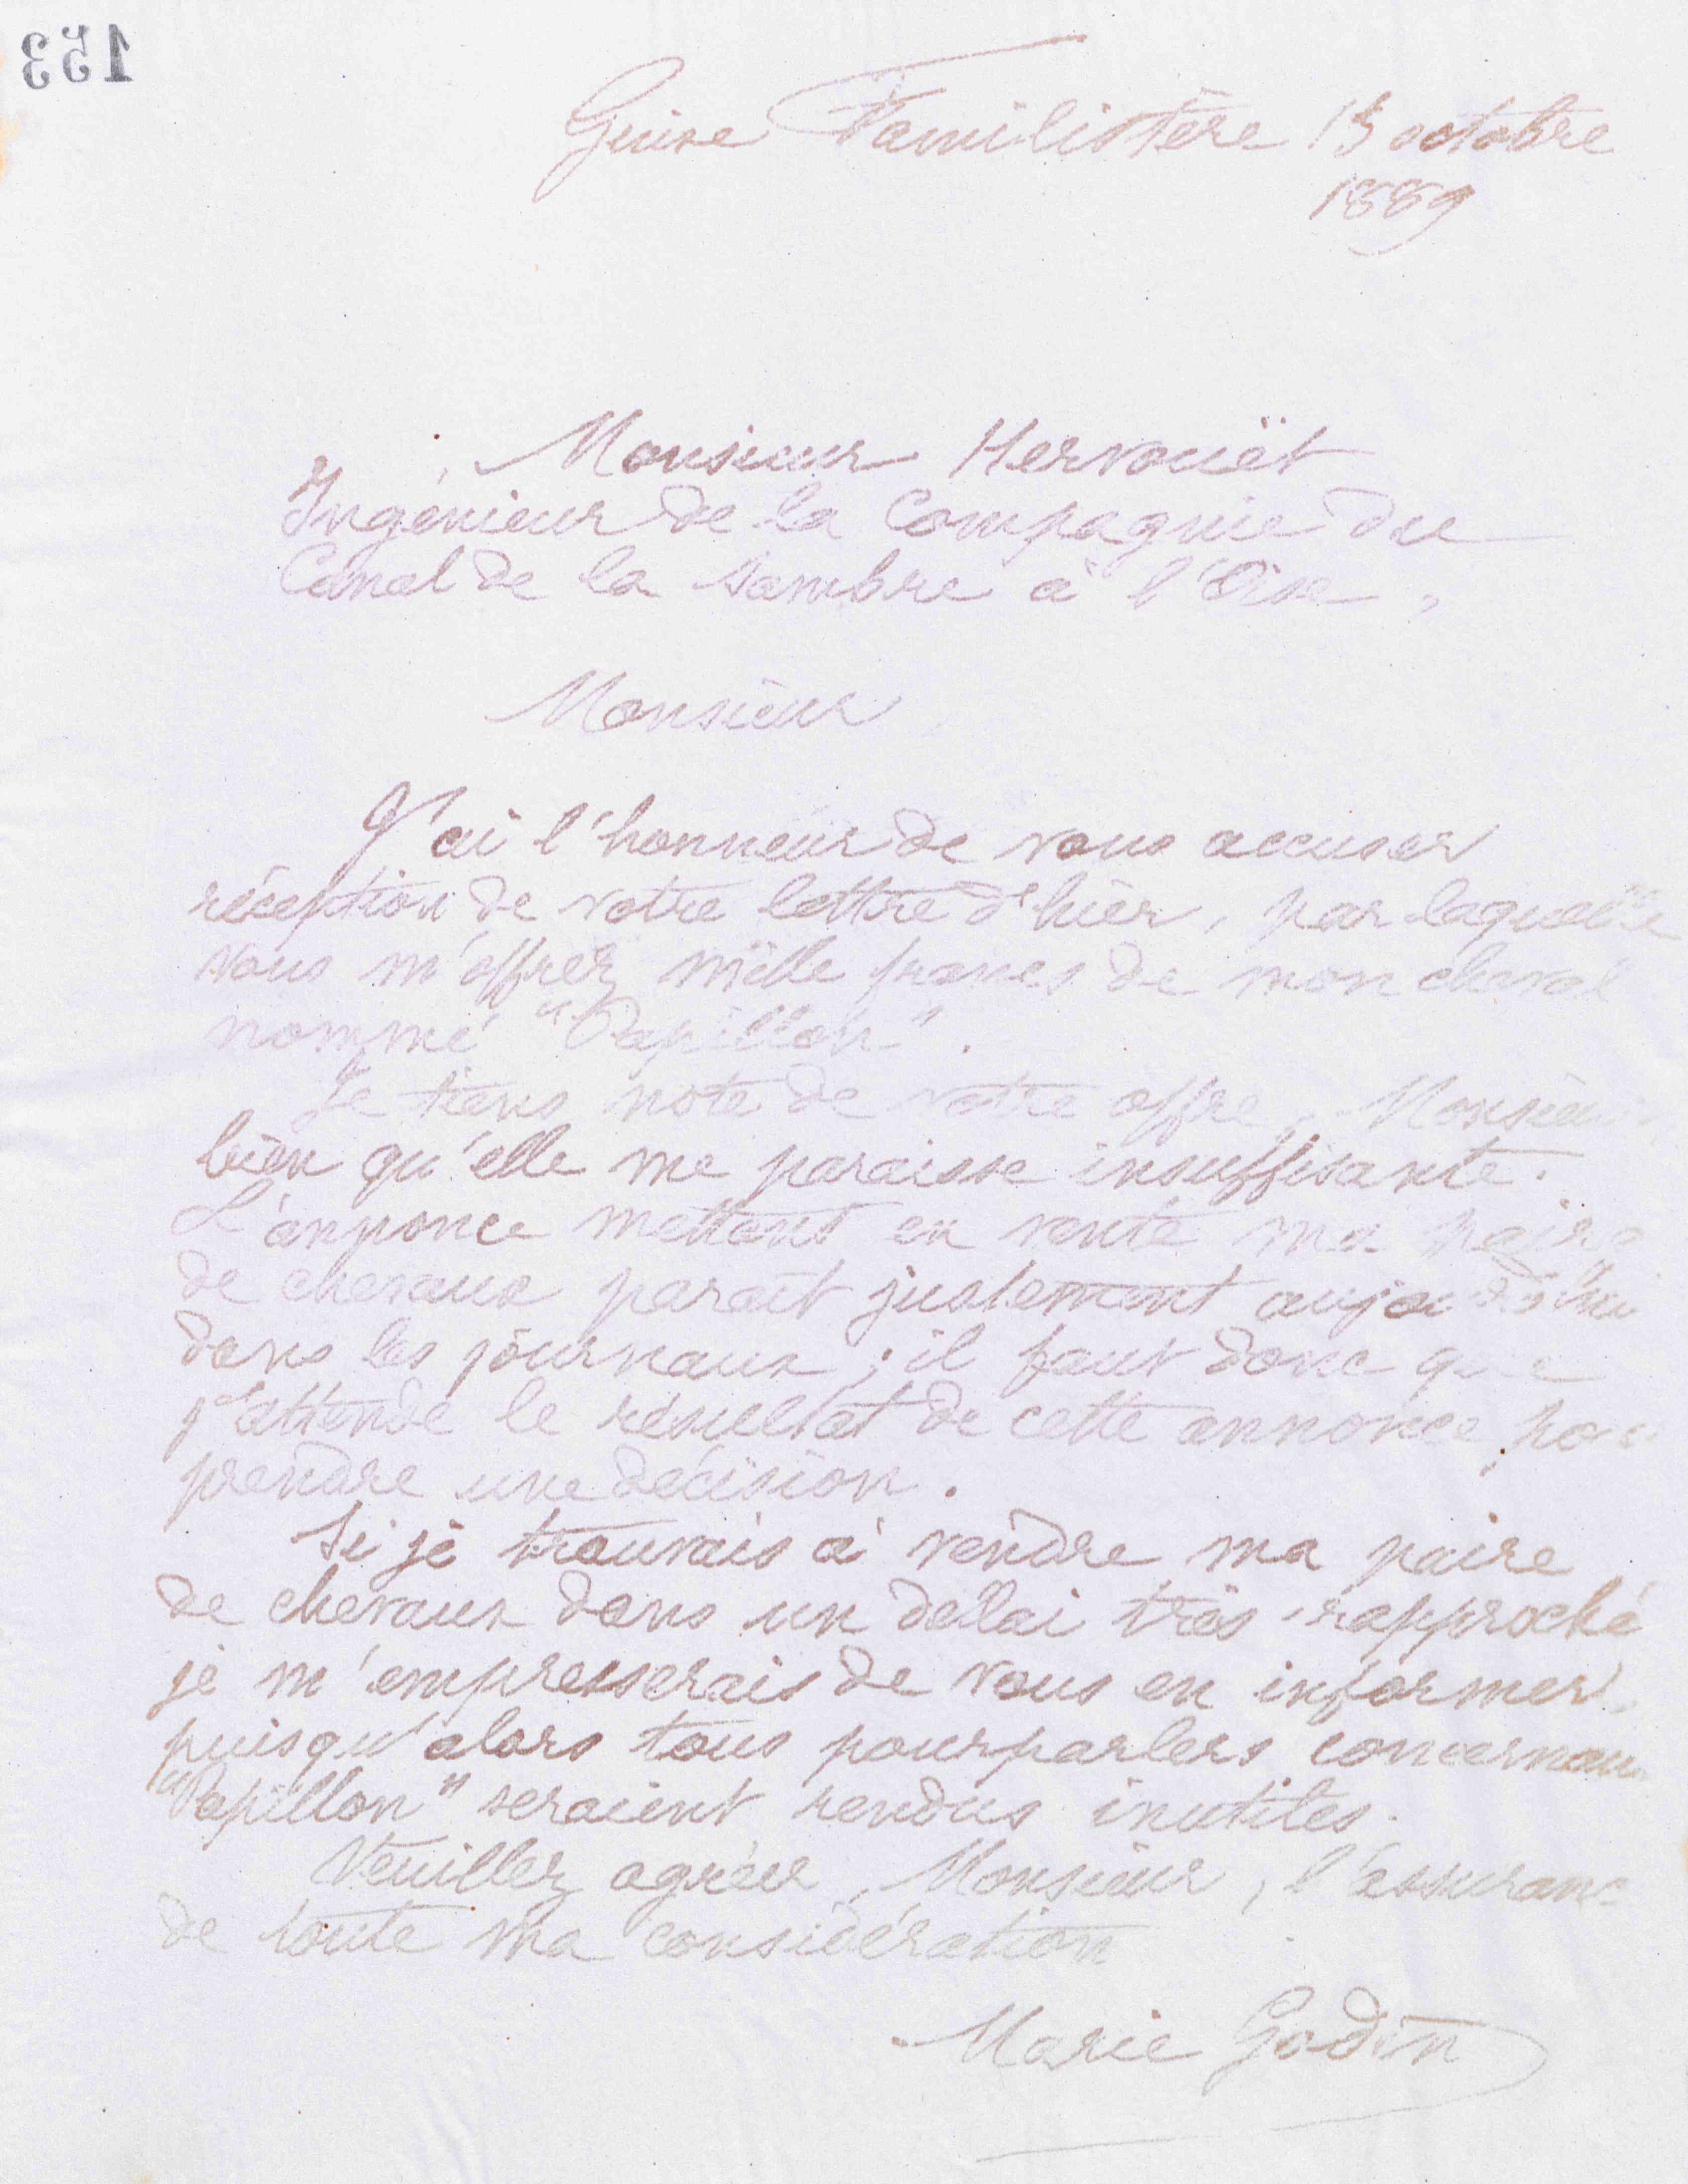 153
Guise Familistère 15 octobre
1889
Monsieur Hervouët
Ingénieur de la Compagnie du
Canal de la Sambre à l'Oise,
Monsieur
J'ai l'honneur de vous accuser
réception de votre lettre d'hier, par laquelle
vous m'offrez mille francs de mon cheval
nommé "Papillon".
Je tiens note de votre offre, Monsieur
bien qu'elle me paraisse insuffisante.
L'annonce mettant en vente ma paire
de chevaux parait justement aujourd'hui
dans les journaux ; il faut donc que
j'attende le résultat de cette annonce pour
prendre une décision.
Si je trouvais à vendre ma paire
de chevaux dans un délai très rapproché
je m'empresserais de vous en informer,
puisqu'alors tous pourparlers concernant
"Papillon" seraient rendus inutiles.
Veuillez agréer, Monsieur, l'assurance
de toute ma considération
Marie Godin